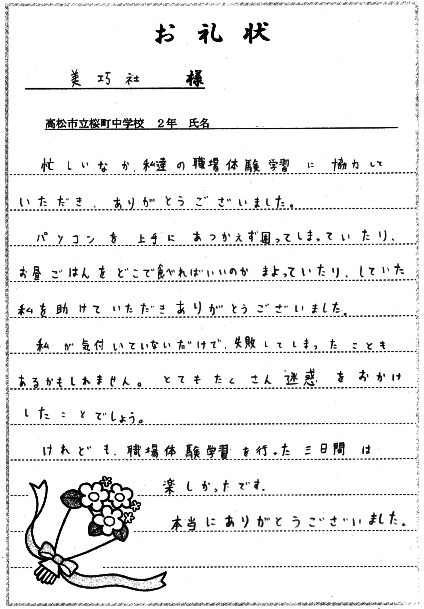 お礼状
美巧社 様
高松市立桜町中学校 2年 氏名
忙しいなか、私達の職場体験学習に協力して
いただき、ありがとうございました。
パソコンを上手にあつかえず困ってしまっていたり、
お昼ごはんをどこで食べればいいのかまよっていたり、していた
私を助けていただきありがとうございました。
私が気付いていないだけで、失敗してしまったことも
あるかもしれません。とてもたくさん迷惑をおかけ
したことでしょう。
けれども、職場体験学習を行った三日間は
楽しかったです。
本当にありがとうございました。